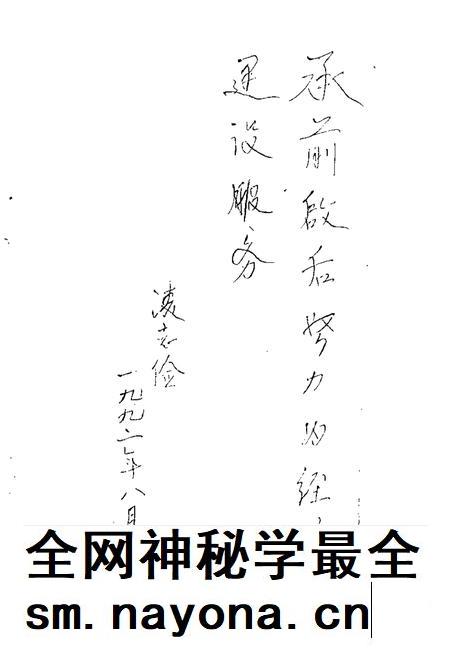 承前啟后努力为经
建设服务
凌志俭
一九九二年八月
全网神秘学最全
sm.nayona.cn